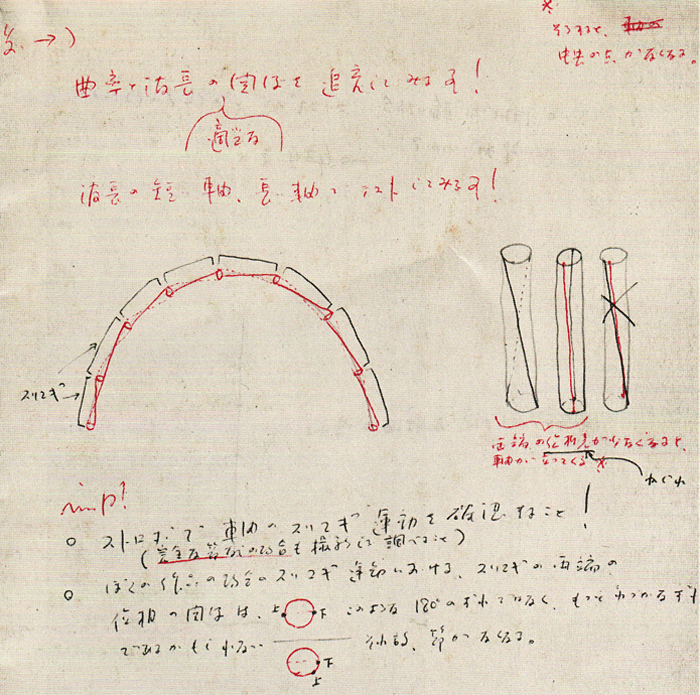 そうすると、
中央の点がなくなる。
曲率と波長の関係を追究してみる事!
適当な
波長の短軸、長軸でテストしてみる事!
スリコギ
両端の位相差が少なくなると、
軸が立ってくる
ねじれ
imp!
ストロボで軸のスリコギ運動を確認すること!
(完全な節などの場合も撮影して調べること)
ぼくの作品の場合のスリコギ運動における、スリコギの両端の
位相の関係は、上 下 このような180°のずれでなく、もっとわずかなずれ
であるかもしれない
その為、節がなくなる。
下
上